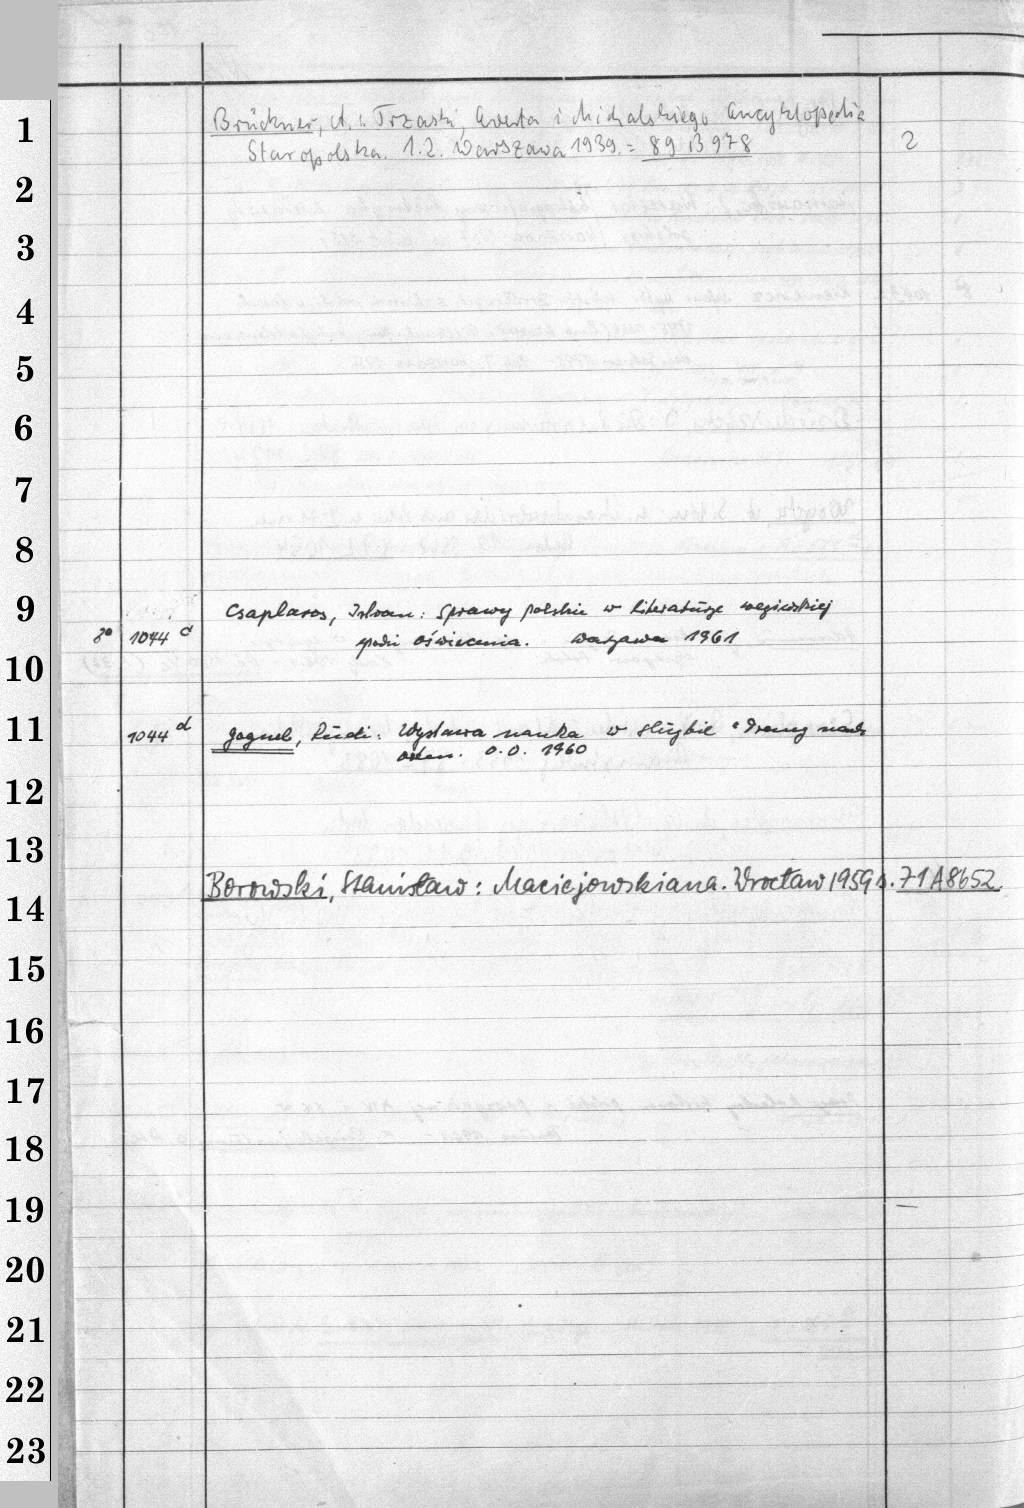 1
Brückner, A. : Trzaski, Everta i Michalskiego Encyklopedia
Staropolska. 1.2. Warszawa 1939. = 89 B 978
2
2
3
4
5
6
7
8
9
Csaplaros, Istvan: Sprawy polskie w literaturze węgierskiej
8° 1044 c epoki oświecenia. Warszawa 1961
10
11
1044 d Gogneb, Rudi: Wystawa nauka w służbie
o.O. 1960
12
13
Borowski, Stanisław: Maciejowskiana. Wrocław 1959 s. 71 A 8652.
14
15
16
17
18
19
20
21
22
23